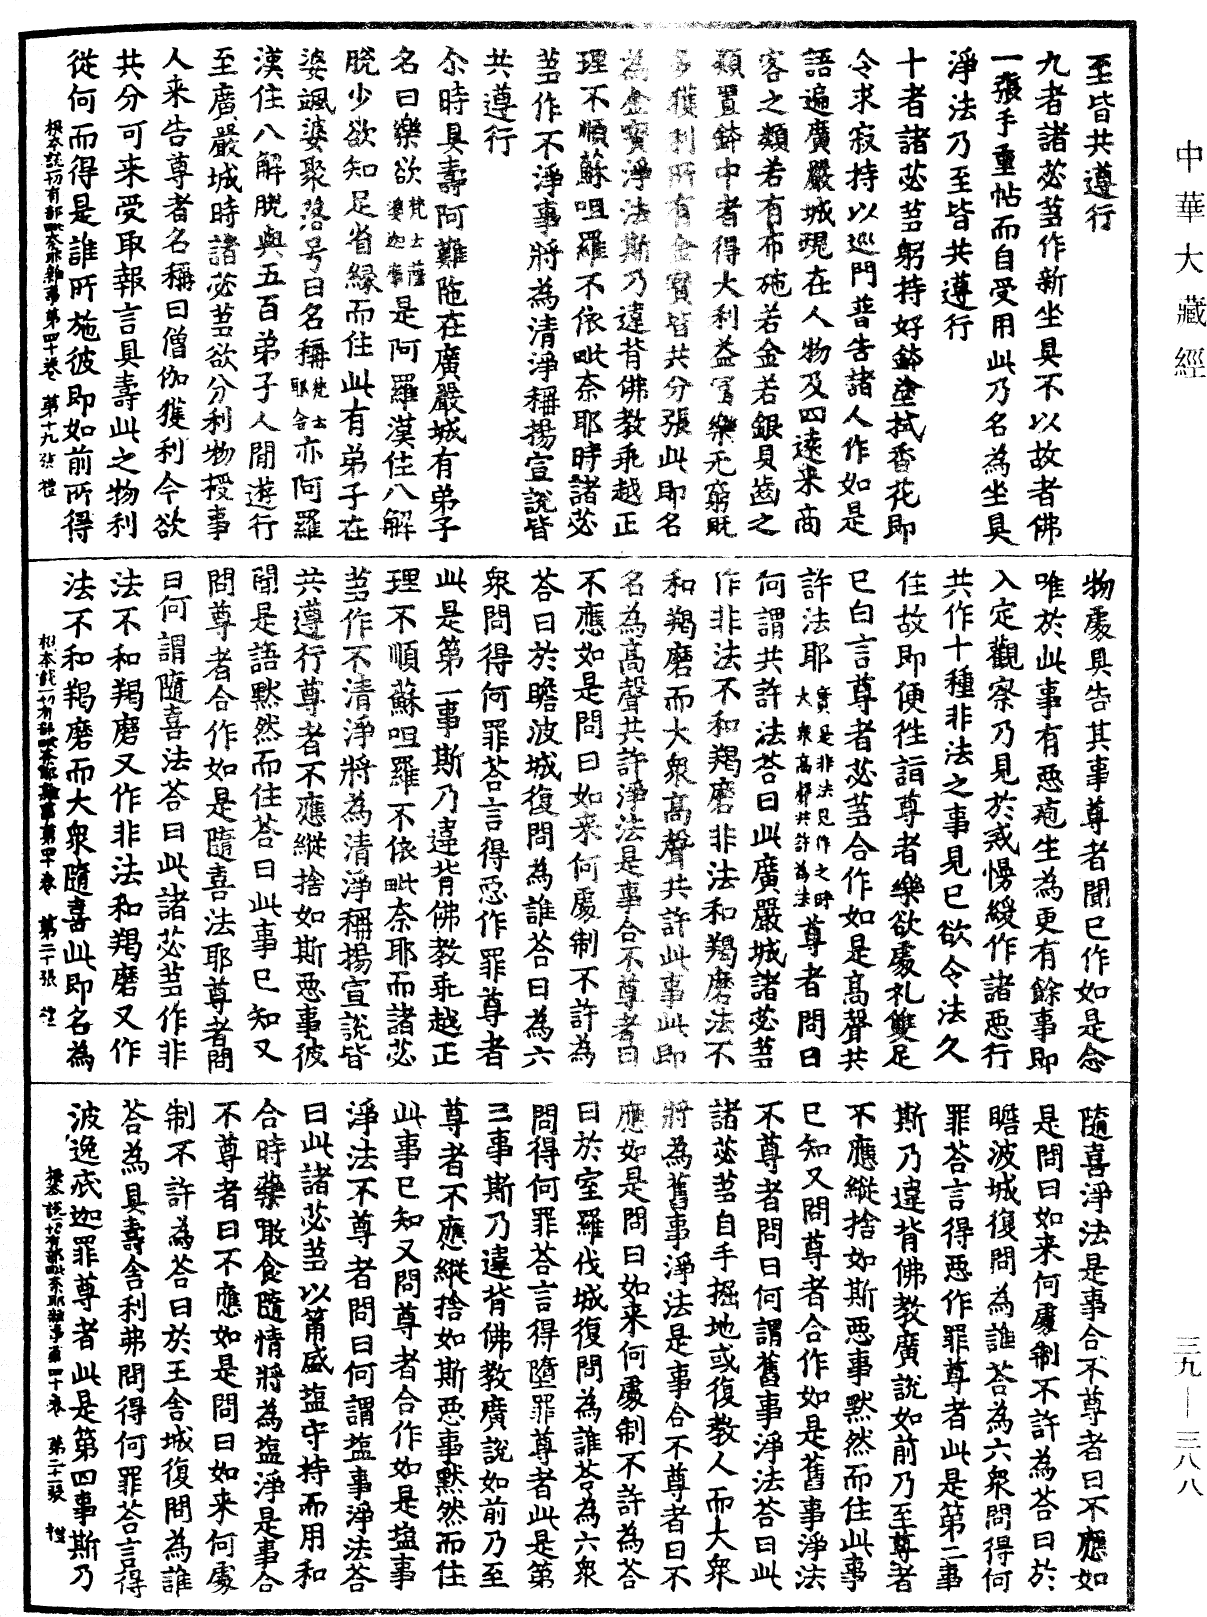 中華大藏經
至皆共遵行
九者諸苾芻作新坐具不以故者佛
一張手重帖而自受用此乃名為坐具
淨法乃至皆共遵行
十者諸苾芻躬持好鉢塗拭香花即
令求寂持以巡門普告諸人作如是
語遍廣嚴城現在人物及四遠来商
客之類若有布施若金若銀貝齒之
類置鉢中者得大利益富樂无窮既
多獲利所有金寶皆共分張此即名
為金寶淨法斯乃違背佛教乖越正
理不順蘇呾羅不依毗奈耶時諸苾
芻作不淨事將為清淨稱揚宣說皆
共遵行
尒時具壽阿難陁在廣嚴城有弟子
名曰樂欲梵士薩婆迦摩是阿羅漢住八解
脫少欲知足省緣而住此有弟子在
婆颯婆聚落号曰名稱梵士耶舍亦阿羅
漢住八解脫與五百弟子人閒遊行
至廣嚴城時諸苾芻欲分利物授事
人来告尊者名稱曰僧伽獲利今欲
共分可来受取報言具壽此之物利
從何而得是誰所施彼即如前所得
根本說一切有部毗奈耶雜事第四十卷 第十九張 禮
物處具告其事尊者聞已作如是念
唯於此事有惡疱生為更有餘事即
入定觀察乃見於戒慢緩作諸惡行
共作十種非法之事見已欲令法久
住故即便往詣尊者樂欲處礼雙足
已白言尊者苾芻合作如是高聲共
許法耶實是非法見作之時大衆高聲共許為法尊者問曰
何謂共許法荅曰此廣嚴城諸苾芻
作非法不和羯磨非法和羯磨法不
和羯磨而大衆高聲共許此事此即
名為高聲共許淨法是事合不尊者曰
不應如是問曰如来何處制不許為
荅曰於瞻波城復問為誰荅曰為六
衆問得何罪荅言得惡作罪尊者
此是第一事斯乃違背佛教乖越正
理不順蘇呾羅不依毗奈耶而諸苾
芻作不清淨將為清淨稱揚宣說皆
共遵行尊者不應縱捨如斯惡事彼
聞是語默然而住荅曰此事已知又
問尊者合作如是隨喜法耶尊者問
曰何謂隨喜法荅曰此諸苾芻作非
法不和羯磨又作非法和羯磨又作
法不和羯磨而大衆隨喜此即名為
根本說一切有部毗奈耶雜事第四十卷 第二十張 禮
隨喜淨法是事合不尊者曰不應如
是問曰如来何處制不許為荅曰於
瞻波城復問為誰荅為六衆問得何
罪荅言得惡作罪尊者此是第二事
斯乃違背佛教廣說如前乃至尊者
不應縱捨如斯惡事默然而住此事
已知又問尊者合作如是舊事淨法
不尊者問曰何謂舊事淨法荅曰此
諸苾芻自手掘地或復教人而大衆
將為舊事淨法是事合不尊者曰不
應如是問曰如来何處制不許為荅
曰於室羅伐城復問為誰荅為六衆
問得何罪荅言得墮罪尊者此是第
三事斯乃違背佛教廣說如前乃至
尊者不應縱捨如斯惡事默然而住
此事已知又問尊者合作如是塩事
淨法不尊者問曰何謂塩事淨法荅
曰此諸苾芻以筩盛塩守持而用和
合時藥噉食隨情將為塩淨是事合
不尊者曰不應如是問曰如来何處
制不許為荅曰於王舍城復問為誰
荅為具壽舍利弗問得何罪荅言得
波逸底迦罪尊者此是第四事斯乃
根本說一切有部毗奈耶雜事第四十卷 第二十一張 禮
三九—三八八